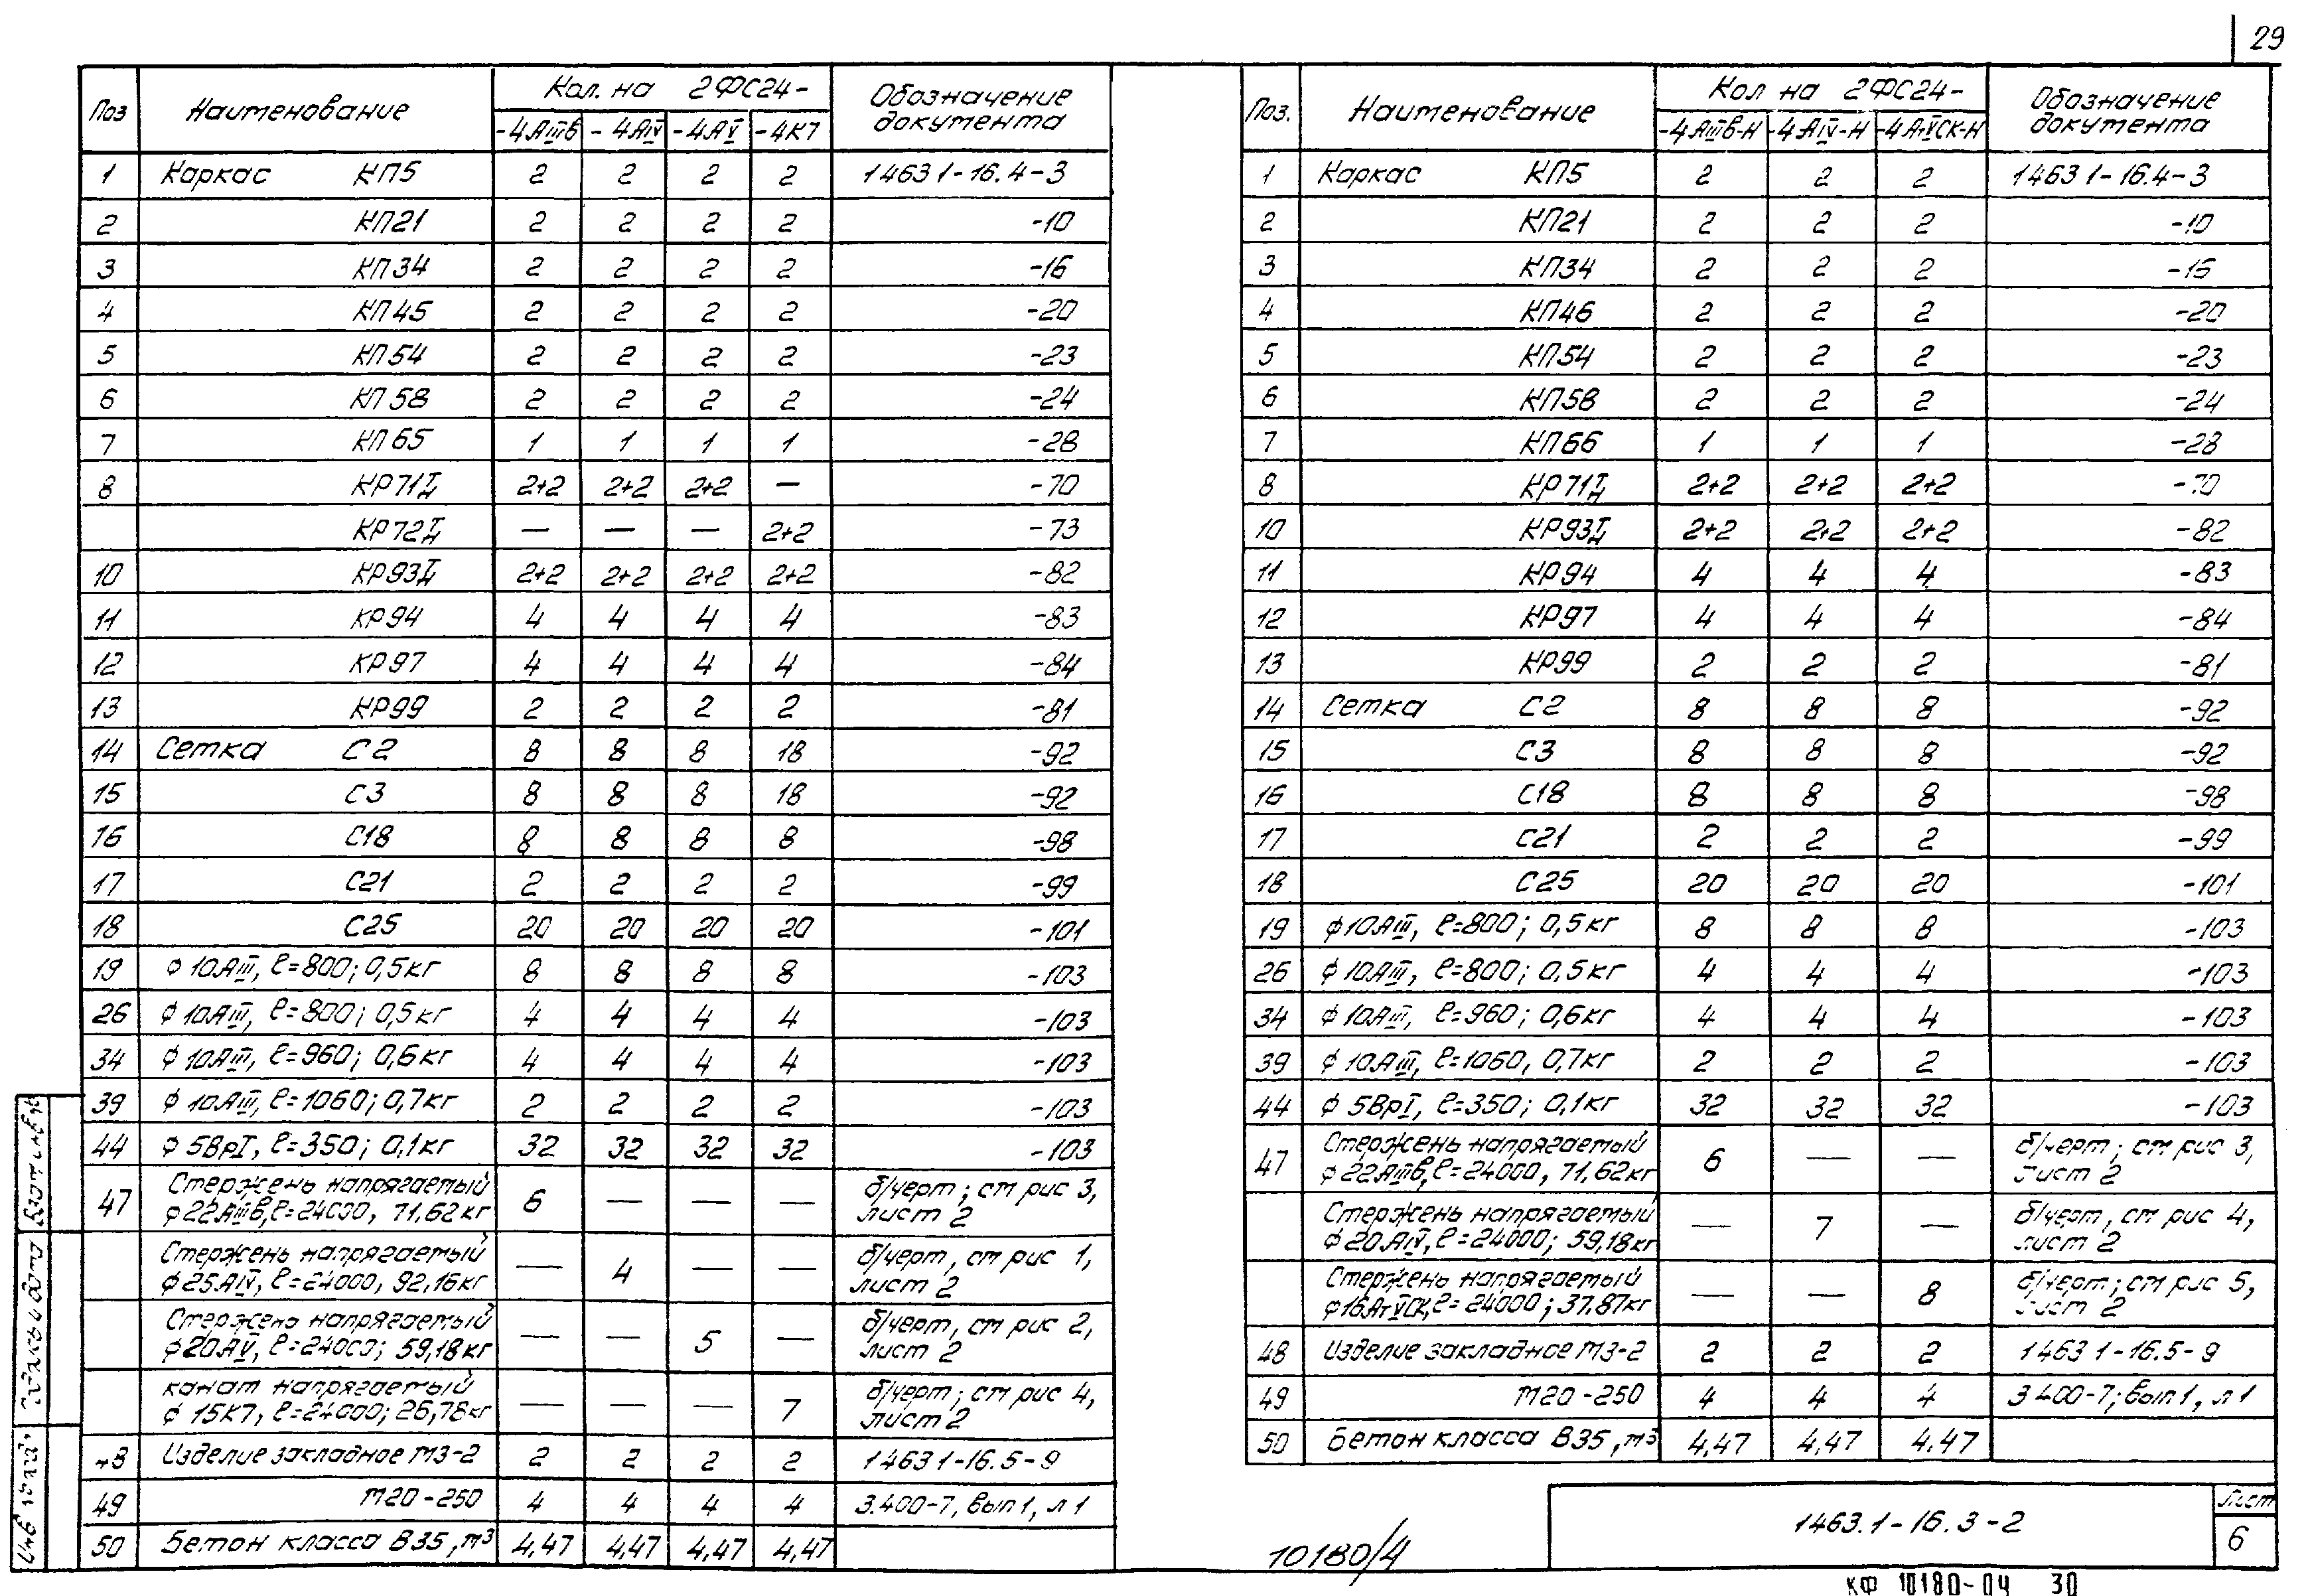 29
Поз Наименование Кол. на 2ФС24- Обозначение документа
-4АIIIв -4АIV -4АV -4К7
1 Каркас КП5 2 2 2 2 1463 1-16.4-3
2 КП21 2 2 2 2 -10
3 КП34 2 2 2 2 -16
4 КП45 2 2 2 2 -20
5 КП54 2 2 2 2 -23
6 КП58 2 2 2 2 -24
7 КП65 1 1 1 1 -28
8 КР71Т/Н 2+2 2+2 2+2 — -70
КР72Т/Н — — — 2+2 -73
10 КР93Т/Н 2+2 2+2 2+2 2+2 -82
11 КР94 4 4 4 4 -83
12 КР97 4 4 4 4 -84
13 КР99 2 2 2 2 -81
14 Сетка С2 8 8 8 18 -92
15 С3 8 8 8 18 -92
16 С18 8 8 8 8 -98
17 С21 2 2 2 2 -99
18 С25 20 20 20 20 -101
19 ϕ10АIII, ℓ=800; 0,5кг 8 8 8 8 -103
26 ϕ10АIII, ℓ=800; 0,5кг 4 4 4 4 -103
34 ϕ10АIII, ℓ=960; 0,6кг 4 4 4 4 -103
39 ϕ10АIII, ℓ=1060; 0,7кг 2 2 2 2 -103
44 ϕ5ВрI, ℓ=350; 0,1кг 32 32 32 32 -103
47 Стержень напрягаемый ϕ22АIIIв, ℓ=24000, 71,62кг 6 — — — б/черт; см рис 3, лист 2
Стержень напрягаемый ϕ25АIV, ℓ=24000, 92,16кг — 4 — — б/черт, см рис 1, лист 2
Стержень напрягаемый ϕ20АV, ℓ=24000; 59,18кг — — 5 — б/черт, см рис 2, лист 2
канат напрягаемый ϕ15К7, ℓ=24000; 26,78кг — — — 7 б/черт; см рис 4, лист 2
48 Изделие закладное М3-2 2 2 2 2 1463 1-16.5-9
49 М20-250 4 4 4 4 3.400-7, вып 1, л 1
50 Бетон класса В35, м³ 4,47 4,47 4,47 4,47
Поз. Наименование Кол на 2ФС24- Обозначение документа
-4АIIIв-Н -4АIV-Н -4АтVСК-Н
1 Каркас КП5 2 2 2 1463 1-16.4-3
2 КП21 2 2 2 -10
3 КП34 2 2 2 -16
4 КП46 2 2 2 -20
5 КП54 2 2 2 -23
6 КП58 2 2 2 -24
7 КП66 1 1 1 -28
8 КР71Т/Н 2+2 2+2 2+2 -70
10 КР93Т/Н 2+2 2+2 2+2 -82
11 КР94 4 4 4 -83
12 КР97 4 4 4 -84
13 КР99 2 2 2 -81
14 Сетка С2 8 8 8 -92
15 С3 8 8 8 -92
16 С18 8 8 8 -98
17 С21 2 2 2 -99
18 С25 20 20 20 -101
19 ϕ10АIII, ℓ=800; 0,5кг 8 8 8 -103
26 ϕ10АIII, ℓ=800; 0,5кг 4 4 4 -103
34 ϕ10АIII, ℓ=960; 0,6кг 4 4 4 -103
39 ϕ10АIII, ℓ=1060, 0,7кг 2 2 2 -103
44 ϕ5ВрI, ℓ=350; 0,1кг 32 32 32 -103
47 Стержень напрягаемый ϕ22АIIIв, ℓ=24000, 71,62кг 6 — — б/черт; см рис 3, лист 2
Стержень напрягаемый ϕ20АIV, ℓ=24000; 59,18кг — 7 — б/черт, см рис 4, лист 2
Стержень напрягаемый ϕ16АтVСК, ℓ=24000; 37.87кг — — 8 б/черт; см рис 5, лист 2
48 Изделие закладное М3-2 2 2 2 1463 1-16.5-9
49 М20-250 4 4 4 3 400-7; вып.1, л 1
50 Бетон класса В35, м³ 4,47 4,47 4.47
1463.1-16.3-2
Лист
6
10180/4
КФ 10180-04 30